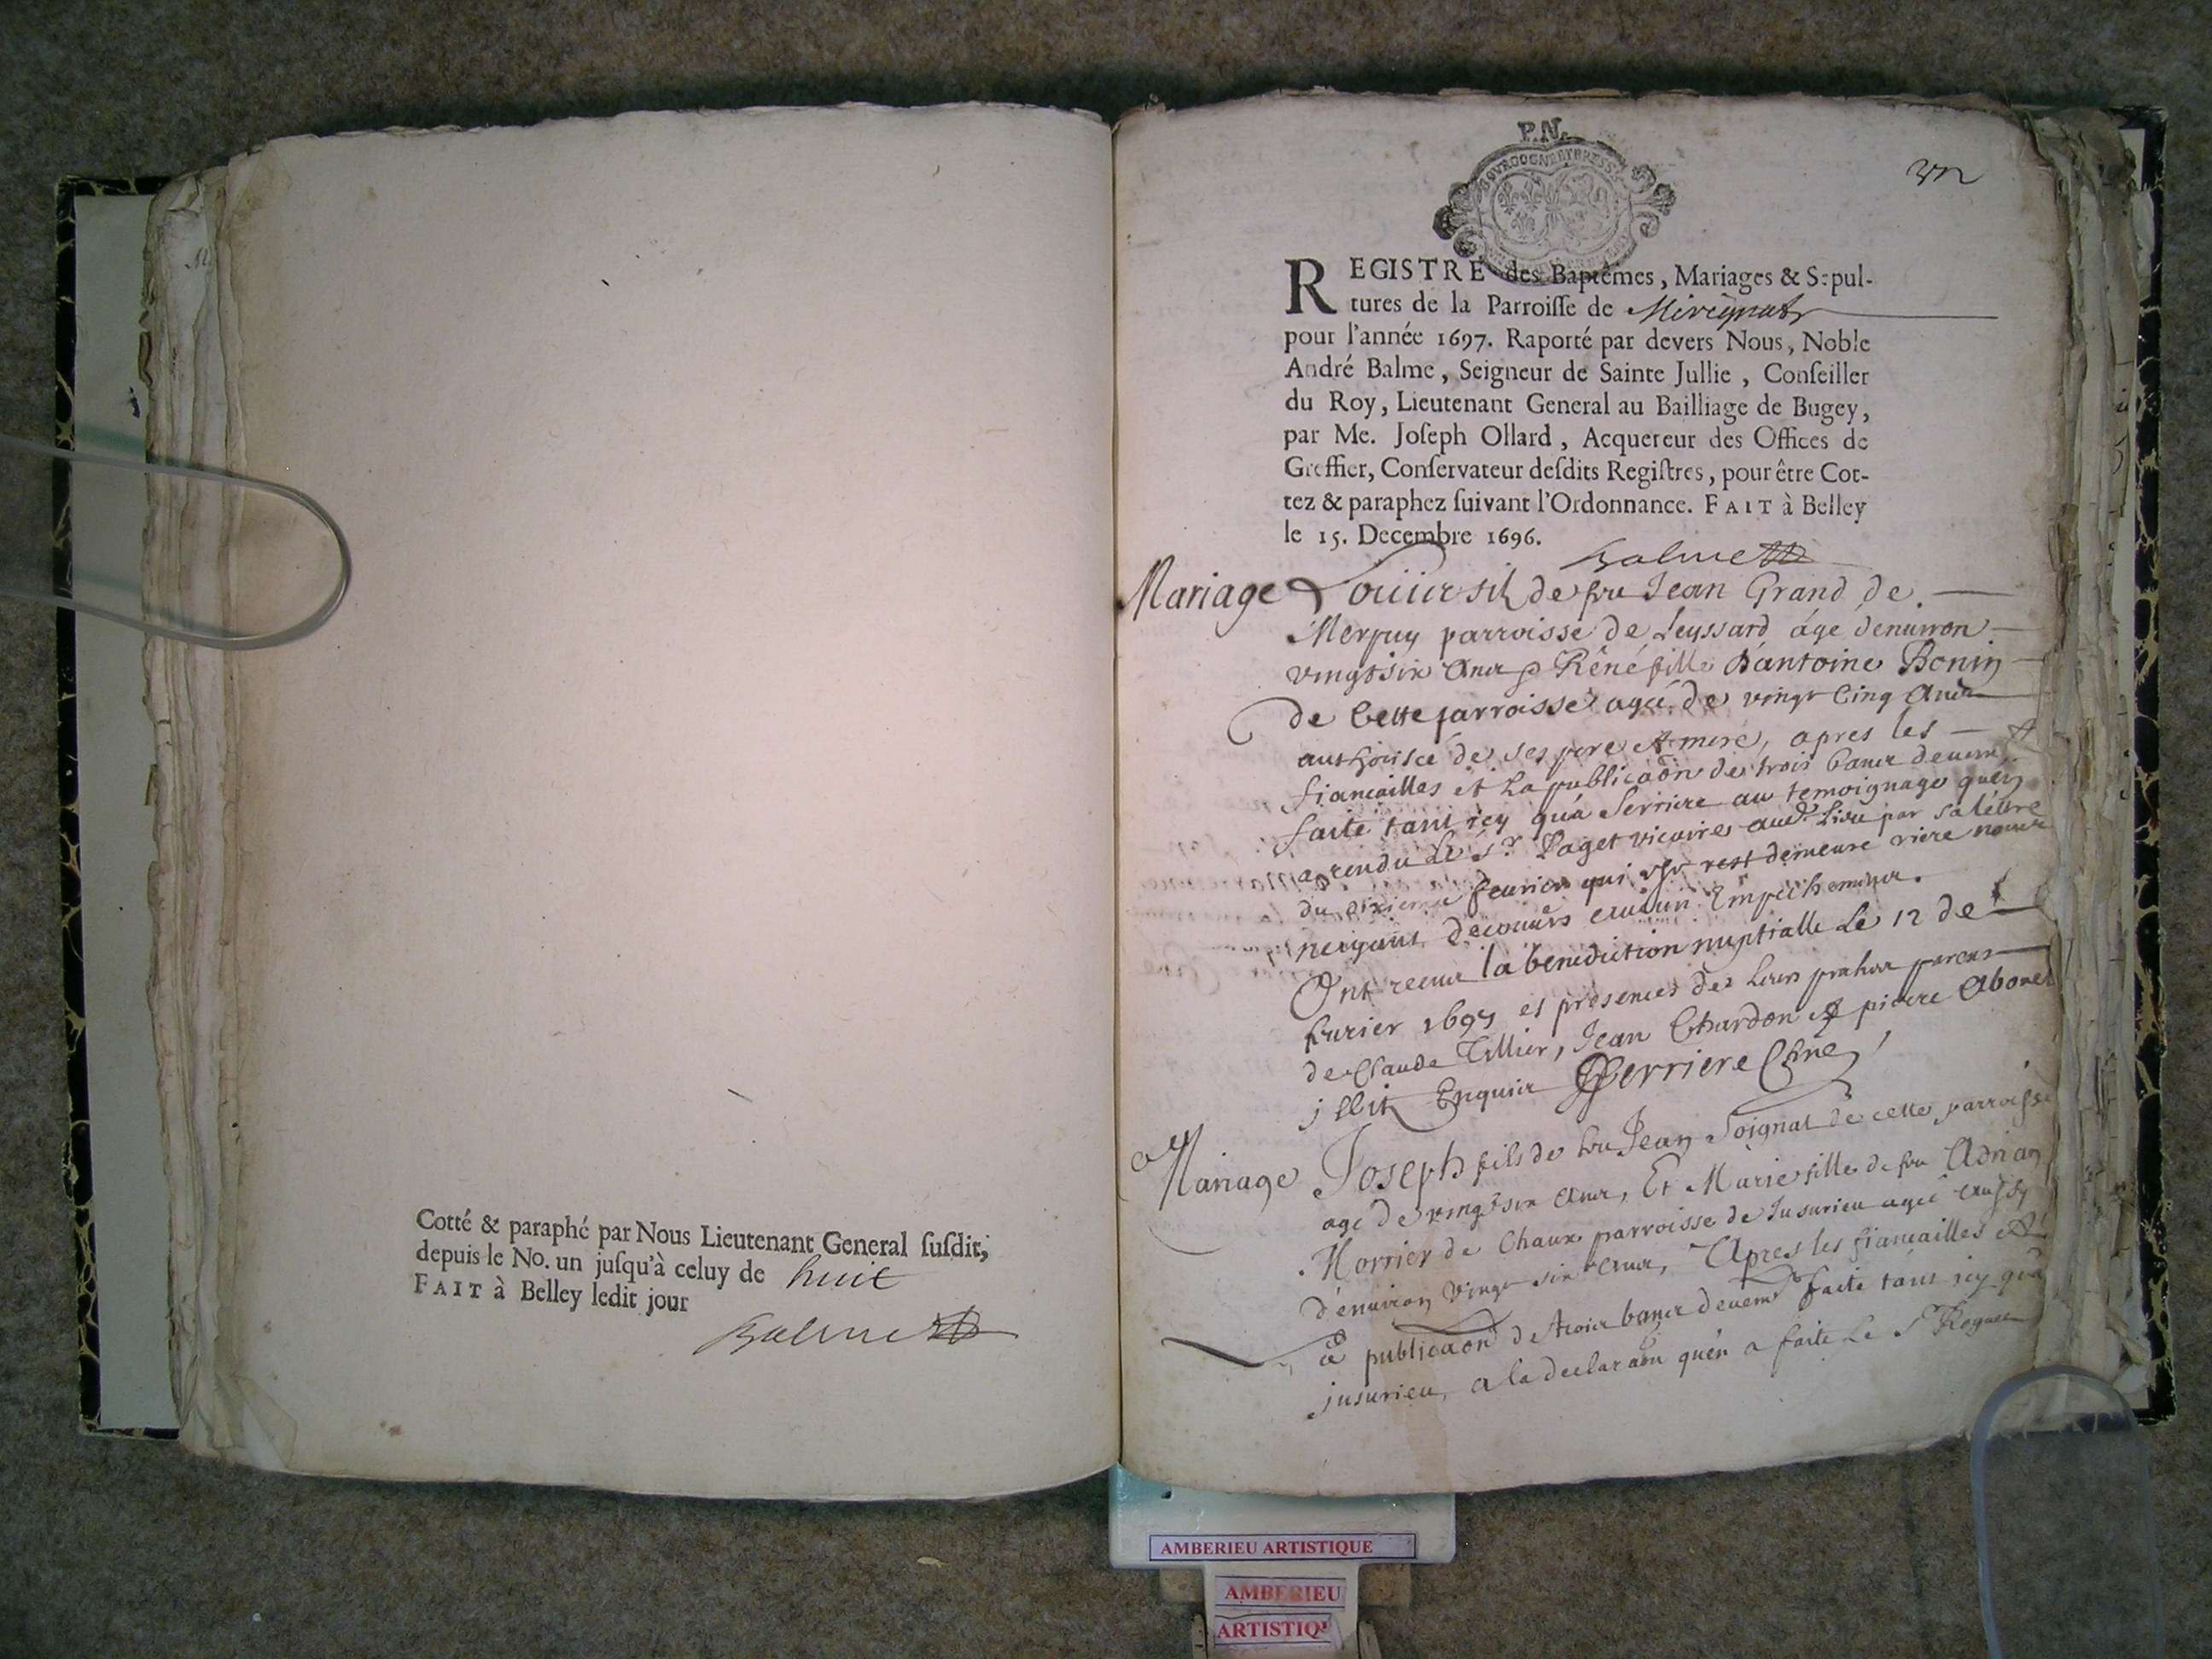 Cotté & paraphé par Nous Lieutenant General ſuſdit,
depuis le No. un juſqu'à celuy de huit
FAIT à Belley ledit jour
Balme
P.N.
BOVRGOGNE ET BRESSE
un
REGISTRE des Baptêmes, Mariages & Sepul-
tures de la Parroiſſe de Mérignat
pour l'année 1697. Raporté par devers Nous, Noble
André Balme, Seigneur de Sainte Jullie, Conſeiller
du Roy, Lieutenant General au Bailliage de Bugey,
par Me. Joſeph Ollard, Acquereur des Offices de
Greffier, Conſervateur deſdits Regiſtres, pour être Cot-
tez & paraphez ſuivant l'Ordonnance. FAIT à Belley
le 15. Decembre 1696.
Balme
Mariage de feu Jean Grand de
parroisse de Leyssard âgé denuiron
vingt six ans Réné fille d'antoine Bonin
de Cette parroisse agée de vingt Cinq ans
de ses pere et mere, apres les
fiancailles et La publicaon de trois bans deuem
faite tant icy qu'a Serriere au temoignage quen
a rendu Le sr Paget vicaire aud Lieu par sa léttre
du feurier qui demeure riere nous
n'ayant decouuers aucun Empechement.
Ont receu la benediction nuptialle Le 12 de
feurier 1697 es presences de Leurs parens
de Claude Tillier, Jean Chardon et pierre
illit Enquis Serriere
Mariage Joseph fils de feu Jean Soignat de cette parroisse
age de vingt six ans, Et Marie fille de feu Adrian
Morrier de Chaux parroisse de Jusurieu agée aussy
d'enuiron vingt six ans, Apres les fiancailles et
La publicaon de trois bans deuem faite tant icy qua
jusurieu, a la declaraon quen a faite Le Sr
AMBERIEU ARTISTIQUE
AMBERIEU
ARTISTIQ